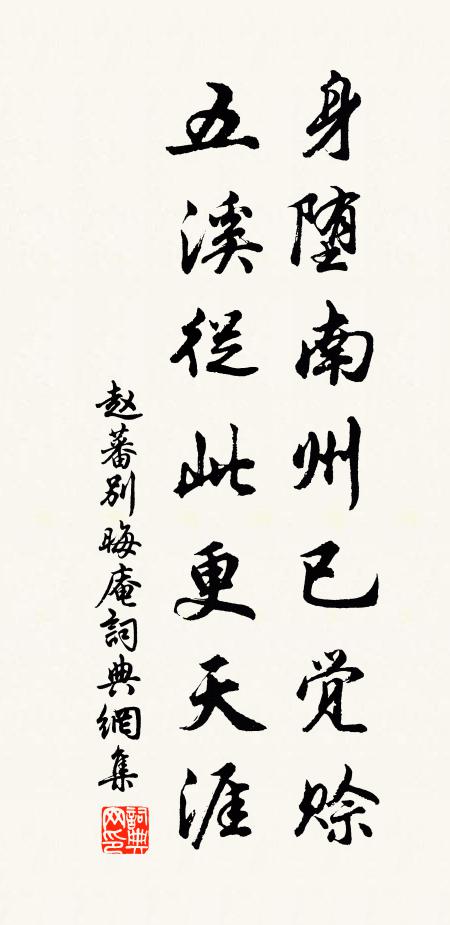 身堕南州已觉赊
五溪從此更天涯
赵蕃别晦庵詞典網集
詞典网印